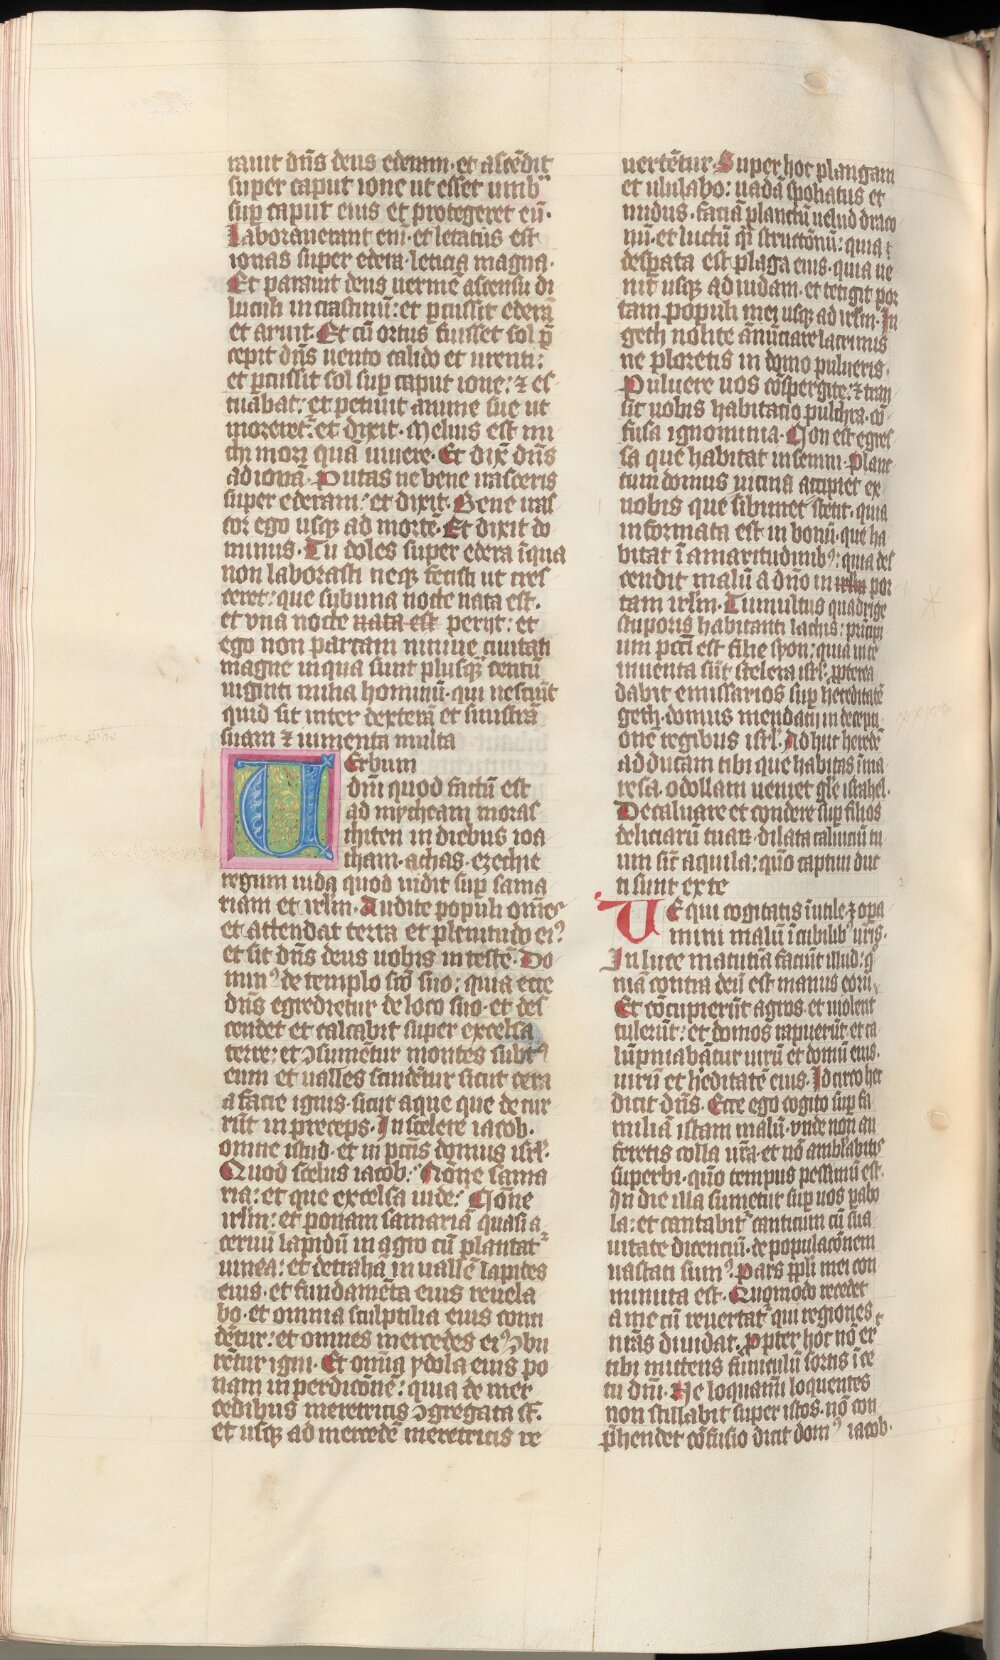 rauit dn̄s deus ederam· et ascēdit
super caput ione ut esset umb̄
sup̄ caput eius et protegeret eū·
Laborauerant enī· et letatus est
ionas super edera leticia magna·
Et parauit deus uermē ascensu di
luculi in crastinū: et ꝑcussit ederā
et aruit· Et cū ortus fuisset sol p̄
cepit dn̄s uento calido et urenti:
et ꝑcussit sol sup̄ caput ione: ⁊ es
tuabat: et petiuit anime sue ut
moreret᷑ et dixit· Melius est mi
chi mori quā uiuere· Et dix̄ dn̄s
ad ionā· Putas ne bene irasceris
super ederam: et dixit· Bene iras
cor ego usqꝫ ad mortē· Et dixit do
minus· Tu doles super edera ī qua
non laborasti neqꝫ fecisti ut cres
ceret: que sub una nocte nata est·
et vna nocte nata est perijt: et
ego non parcam niniue ciuitati
magne in qua sunt plusqꝫ centū
uiginti milia hominū· qui nesciūt
quid sit inter dexterā et sinistrā
suam ⁊ iumenta multa
Uerbum
dn̄i quod factū est
ad mycheam moras
thiten in diebus ioa
tham· achas· ezechie
regum iuda quod uidit sup̄ sama
riam et irlm̄· Audite populi om̄es
et attendat terra et plenitudo eiꝰ
et sit dn̄s deus uobis in testē· Do
minꝰ de templo sc̄o suo: quia ecce
dn̄s egredietur de loco suo· et des
cendet et calcabit super excelsa
terre: et ꝯsumētur montes subtꝰ
eum et ualles scindētur sicut cera
a facie ignis· sicut aque que decur
rūt in preceps· In scelere iacob·
omne istud· et in pctīs domus isrl̄·
Quod scelus iacob: Nōne sama
ria: et que excelsa iude: Nōne
irlm̄: et ponam samariā quasi a
ceruū lapidū in agro cū plantat᷑
uinea: et detrahā in uallē lapides
eius· et fundamēta eius reuela
bo· et omnia sculptilia eius conci
dētur: et omnes mercedes eiꝰ ꝯbu
rētur igni· Et om̄ia ydola eius po
nam in perdicōnē: quia de mer
cedibus meretricis ꝯgregata st̄·
et usqꝫ ad mercedē meretricis re
uertētur· Super hoc plangam
et ululabo: uadā spoliatus et
nudus· faciā planctū uelud draco
nū· et luctū qͥ structonū: quia
desꝑata est plaga eius· quia ue
nit usqꝫ ad iudam· et tetigit por
tam populi mei usqꝫ ad irlm̄· In
geth nolite ānūciare lacrimis
ne ploretis in domo pulueris·
Puluere uos cōspergite: ⁊ tran
sit uobis habitatio pulchra· cō
fusa ignominia· Non est egres
sa que habitat in sennu· Planc
tum domus uicina accipiet ex
uobis que sibimet stetit· quia
informata est in bonū· que ha
bitat ī amaritudinibꝰ: quia des
cendit malū a dn̄o in por
tam irlm̄· Tumultus quadrige
stuporis habitanti lachis: princip
ium pctī est filie syon: quia in te
inuenta sūt scelera isrl̄: ꝓpterea
dabit emissarios sup̄ hereditatē
geth· domus mendacij in decepti
onē regibus isrl̄· Ad huc heredē
adducam tibi que habitas ī ma
resa· odollam ueniet glīe israhel·
Decaluare et tondere sup̄ filios
deliciarū tuarꝫ· dilata caluiciū tu
um sic̄ aquila: qm̄o captiui duc
ti sunt ex te
Ue qui cogitatis īutile ⁊ opa
mini malū ī cubilibꝰ ur̄is·
In luce matutīa faciūt illud: qͦ
niā contra deū est manus eorū·
Et cōcupierūt agros· et uiolent
tulerūt: et domos rapuerūt· et ca
lūpniabātur uirū et domū eius·
uirū et hēditatē eius· Idcirco hec
dicit dn̄s· Ecce ego cogito sup̄ fa
milia istam malū· vnde non au
feretis colla ur̄a· et nō amblabitis
superbi· qm̄o tempus pessimū est·
In die illa sumetur sup̄ uos pabo
la: et cantabit᷑ canticum cū sua
uitate dicenciū· depopulacōnem
uastati sumꝰ· Pars ppl̄i mei con
mutata est· Quomodo recedet
a me cū reuertat᷑ qui regiones
nr̄as diuidat· Ꝓpter hoc nō er̄
tibi mittens funiculū sortis ī ce
tu dn̄i· Ne loquamī loquentes
non stillabit super istos· nō con
p̄hendet cōfusio dicit domꝰ iacob·